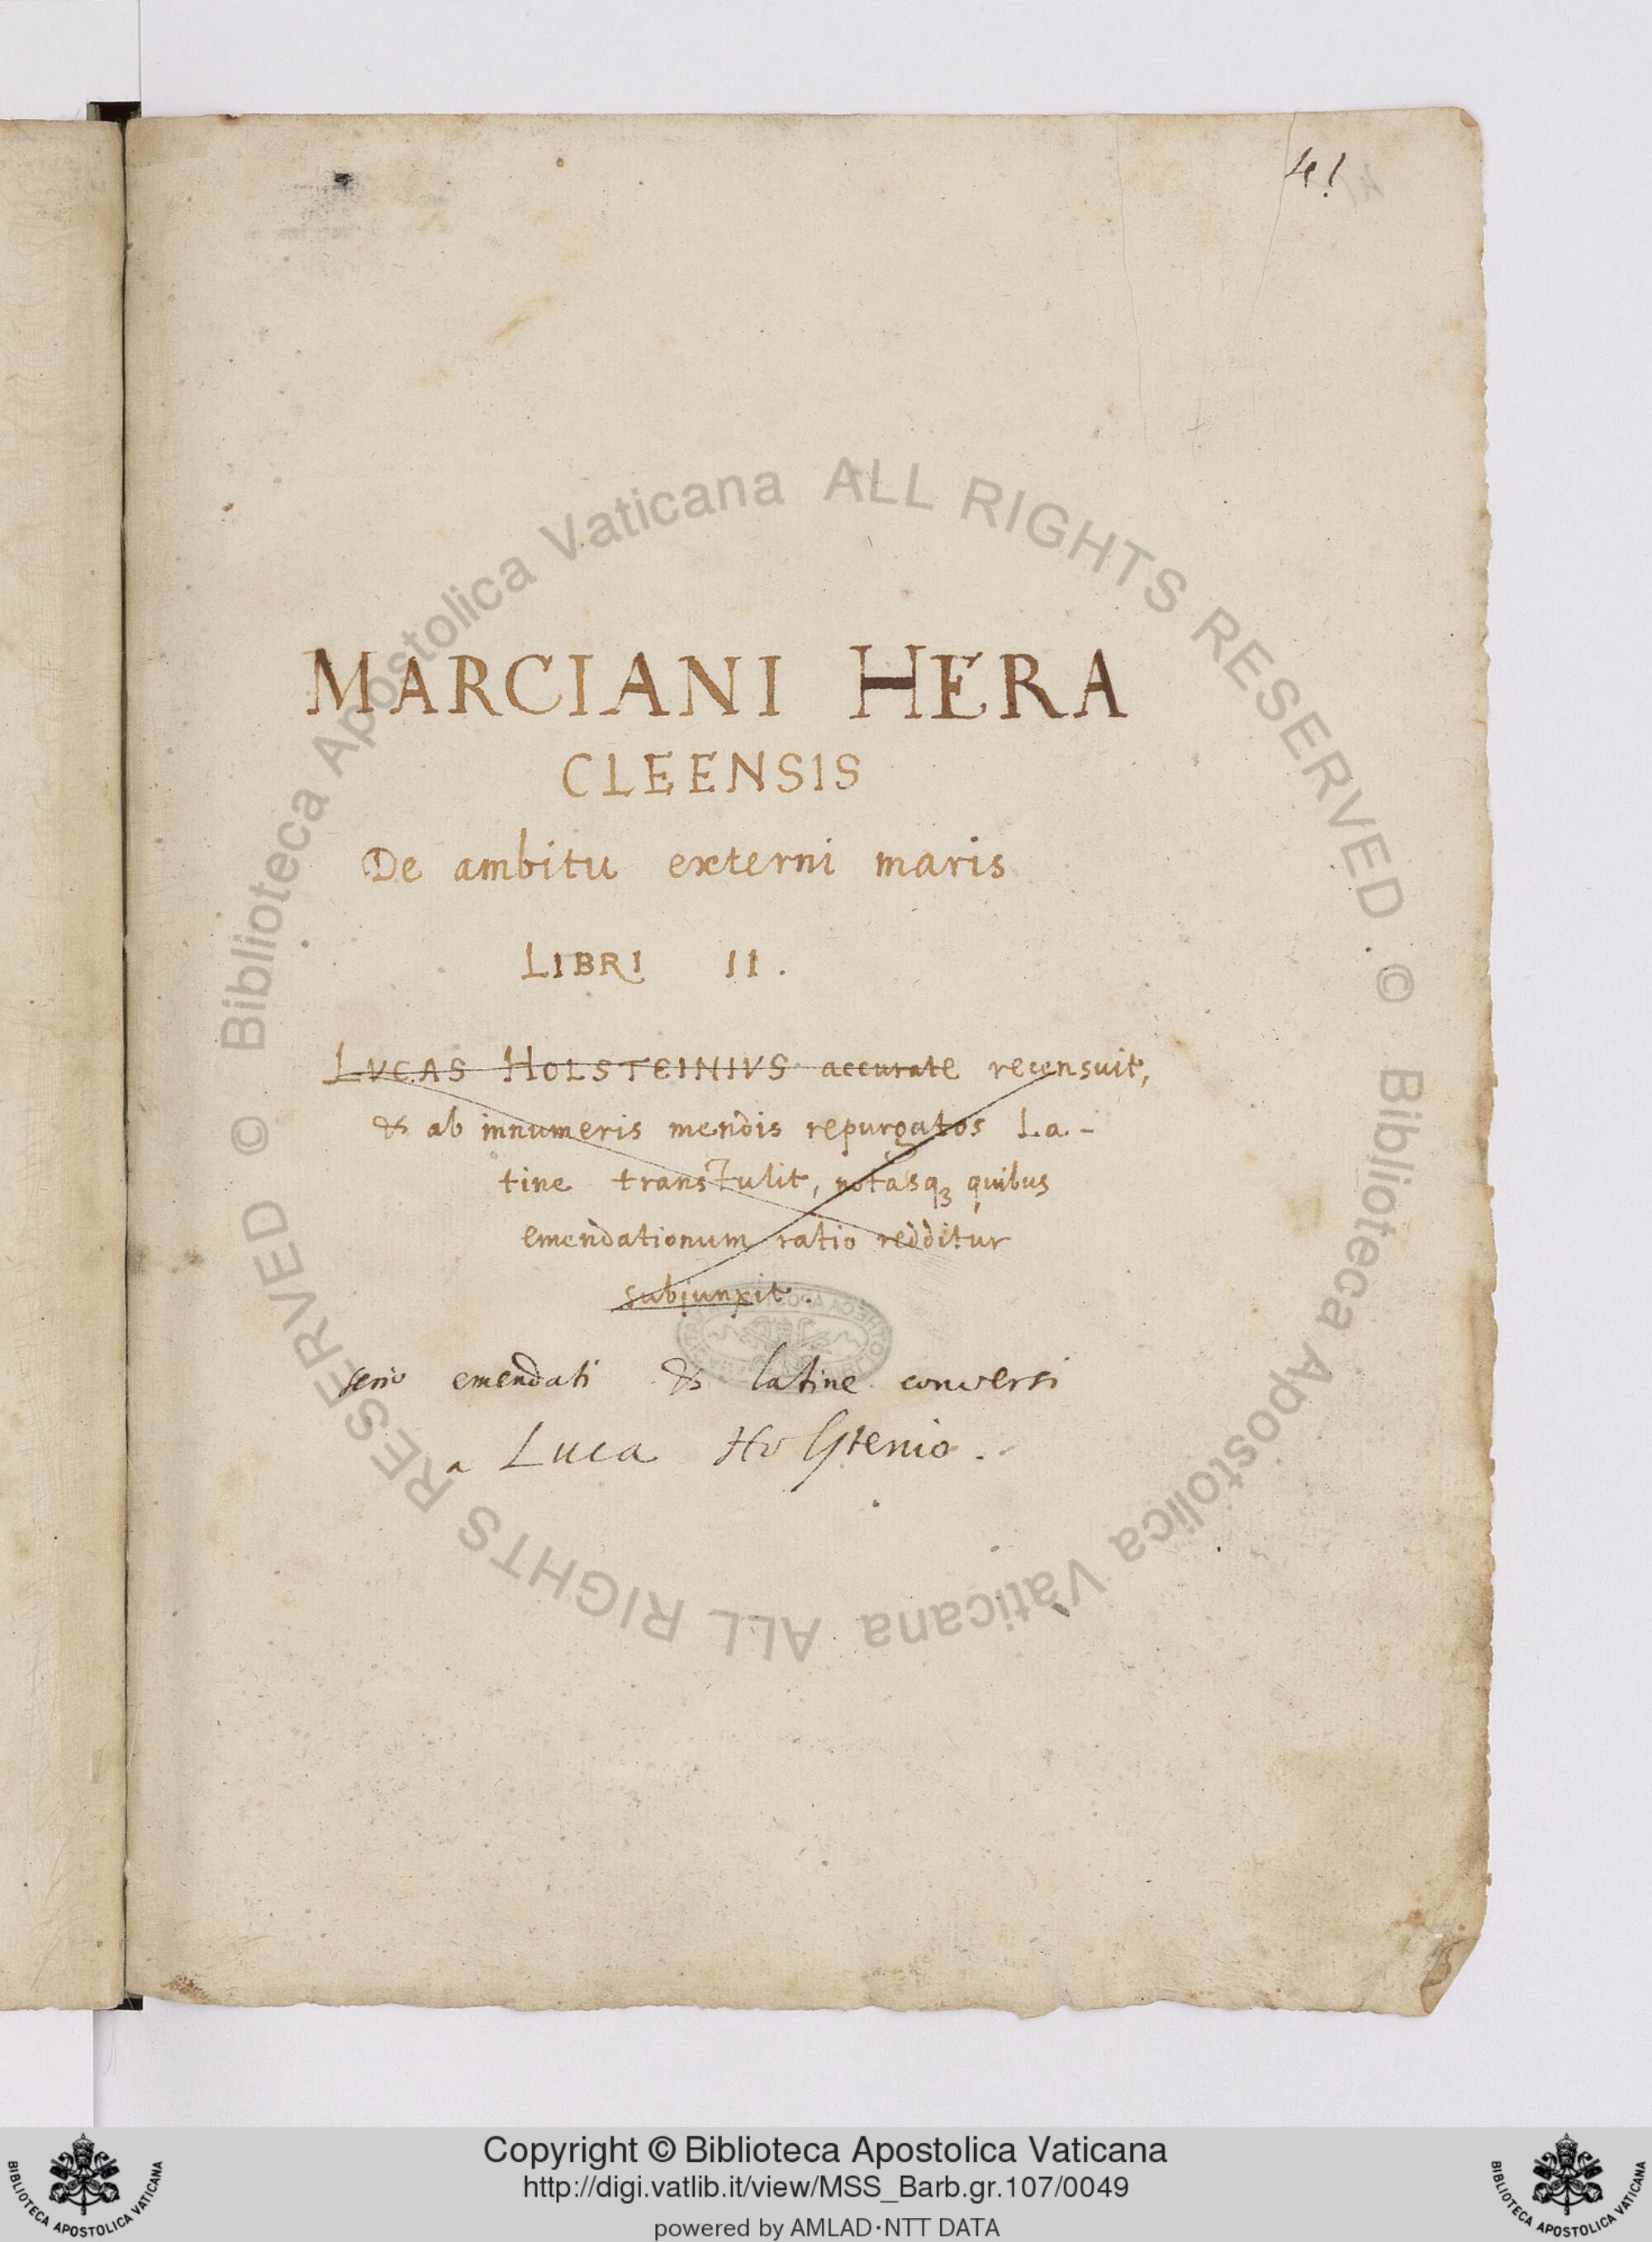 41
MARCIANI HERA
CLEENSIS
De ambitu externi maris
LIBRI II.
LVCAS HOLSTEINIVS accurate recensuit,
& ab innumeris mendis repurgatos La-
tine transtulit, notasq3 quibus
emendationum ratio redditur
subjunxit.
serio emendati & latine conversi
a Luca Holstenio.
© Biblioteca Apostolica Vaticana ALL RIGHTS RESERVED © Biblioteca Apostolica Vaticana ALL RIGHTS RESERVED
Copyright © Biblioteca Apostolica Vaticana
http://digi.vatlib.it/view/MSS_Barb.gr.107/0049
powered by AMLAD·NTT DATA
BIBLIOTECA APOSTOLICA VATICANA
BIBLIOTECA APOSTOLICA VATICANA